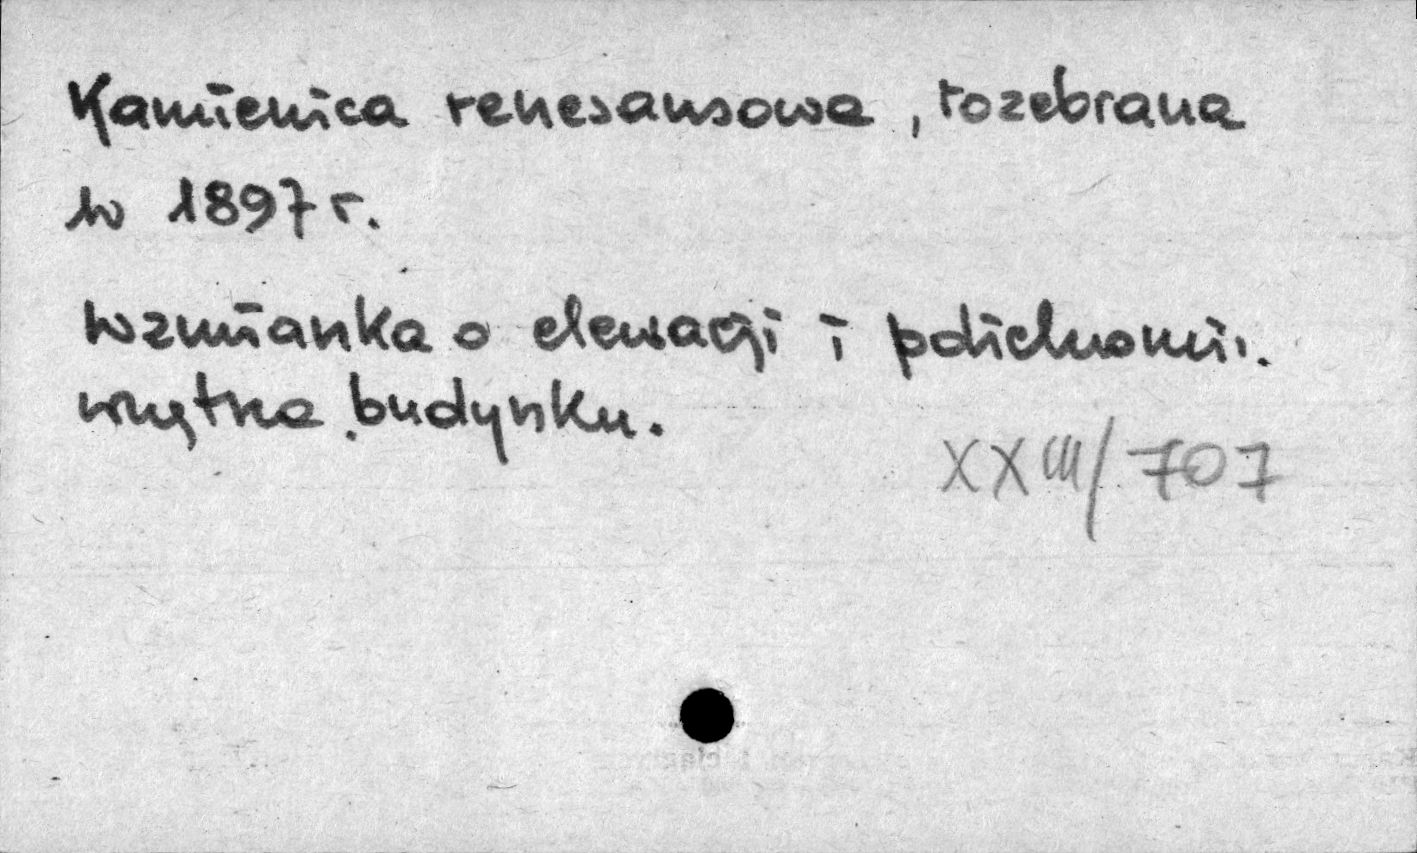 Kamienica renesansowa, rozebrana
w 1897 r.
Wzmianka o elewacji i
wnętrza budynku.
XXIII/707